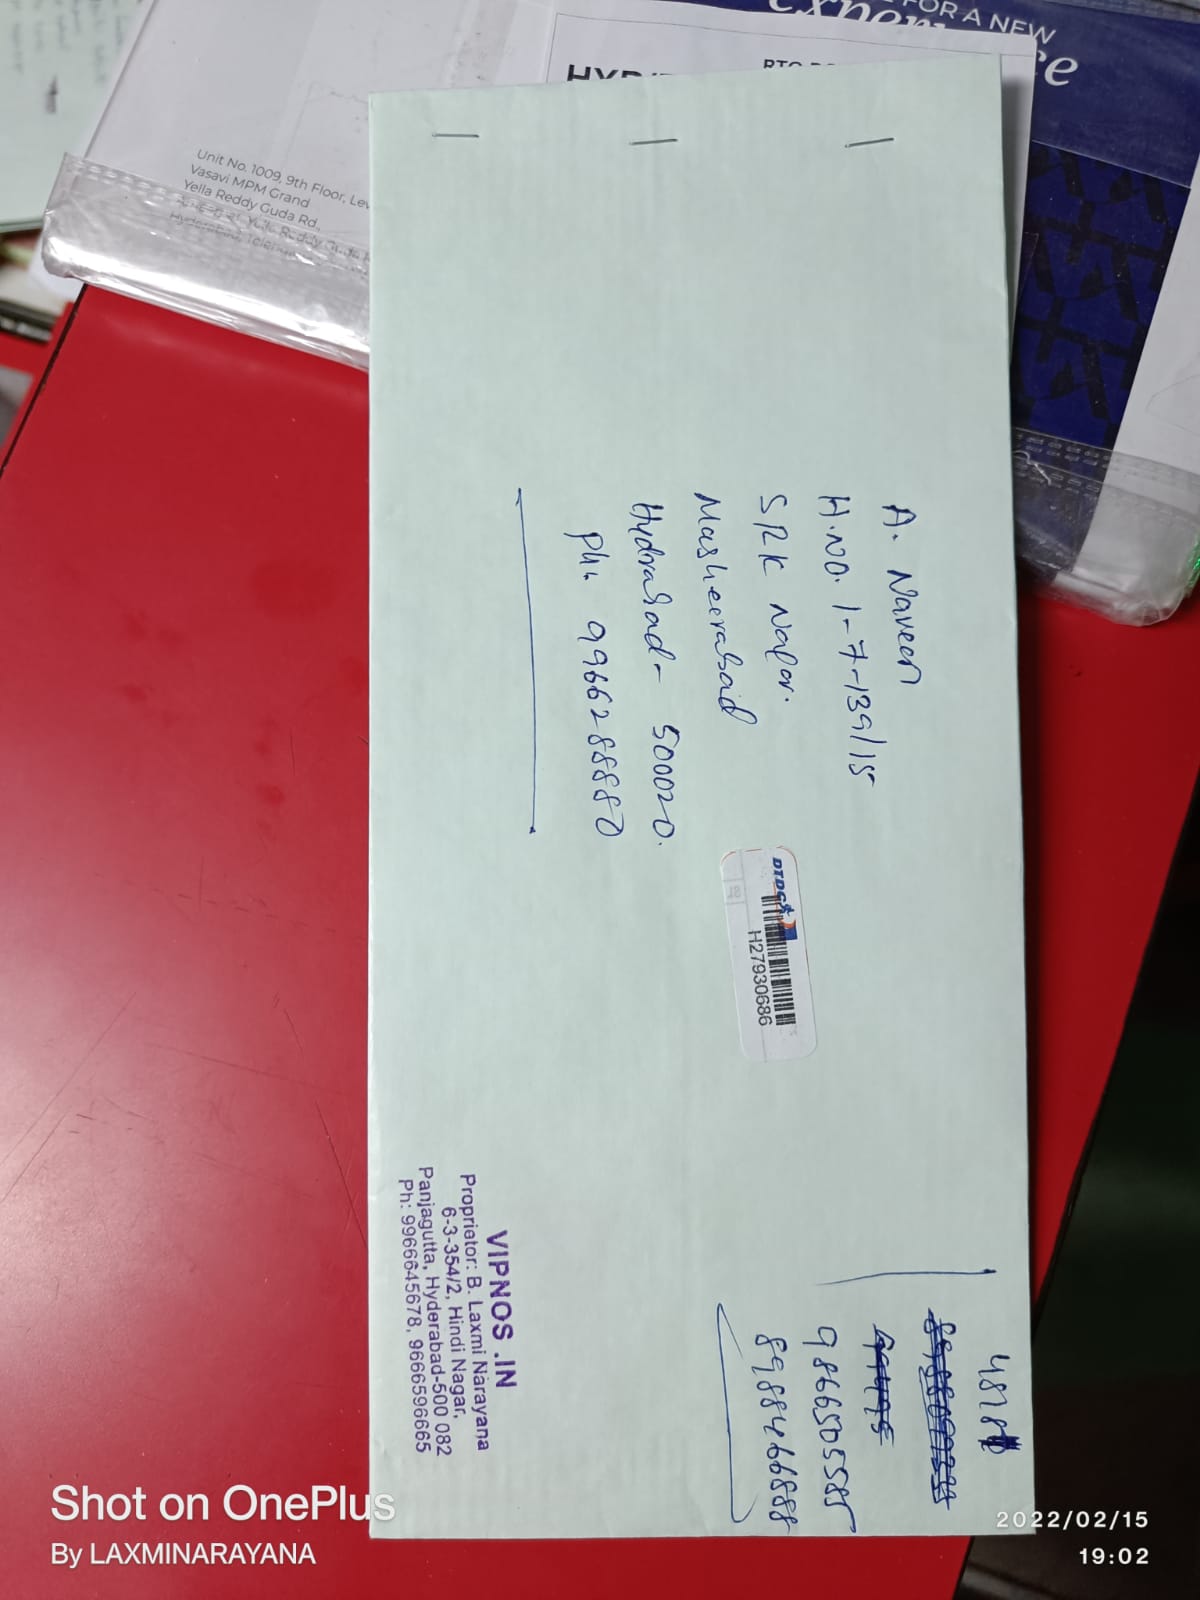 FOR A NEW
RTO
Unit No. 1009, 9th Floor,
Vasavi MPM Grand
Yella Reddy Guda Rd.,
A. Naveen
H.NO. 1-7-139/15
SRK Nagar.
Musheerabad
Hydrabad - 500020.
Ph: 9966288880
DTDC
H27930686
4818
9866505585
8988466888
VIPNOS .IN
Proprietor: B. Laxmi Narayana
6-3-354/2, Hindi Nagar,
Panjagutta, Hyderabad-500 082
Ph: 9966645678, 9666596665
Shot on OnePlus
By LAXMINARAYANA
2022/02/15
19:02